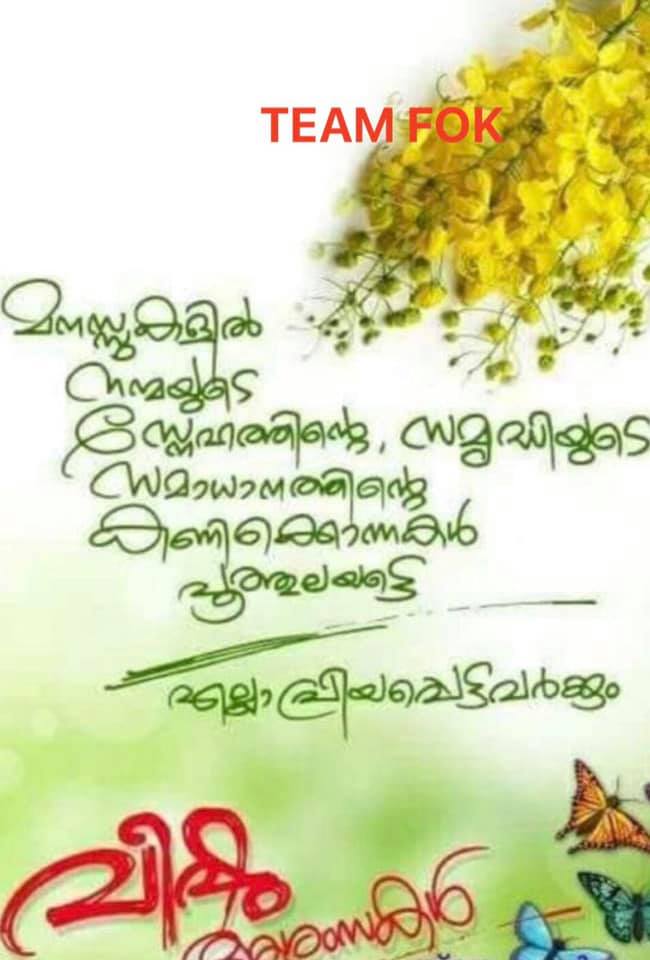 TEAM FOK
മനസ്സുകളിൽ
നന്മയുടെ
സ്നേഹത്തിന്റെ, സമൃദ്ധിയുടെ
സമാധാനത്തിന്റെ
കണിക്കൊന്നകൾ
പൂത്തുലയട്ടെ
എല്ലാ പ്രിയപ്പെട്ടവർക്കും
വിഷു
ആശംസകൾ